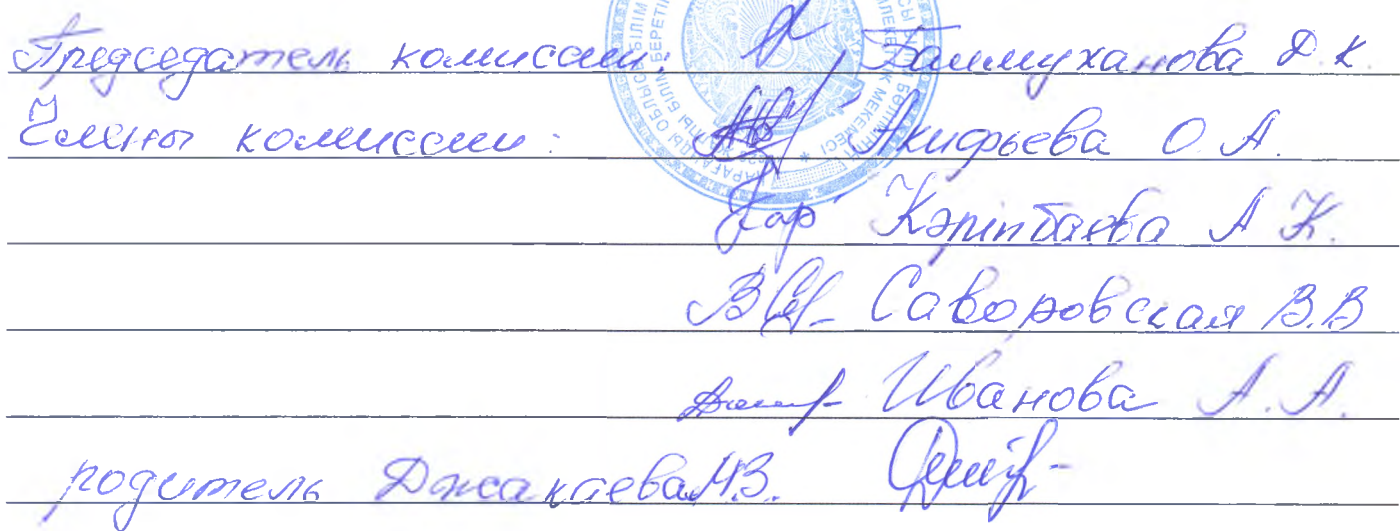 Председатель комиссии: Баймуханова Д.К.
Члены комиссии: Акифьева О.А.
Кәріпбаева А.К.
Саворовская В.В
Иванова А.А.
родитель Джакаева М.З.